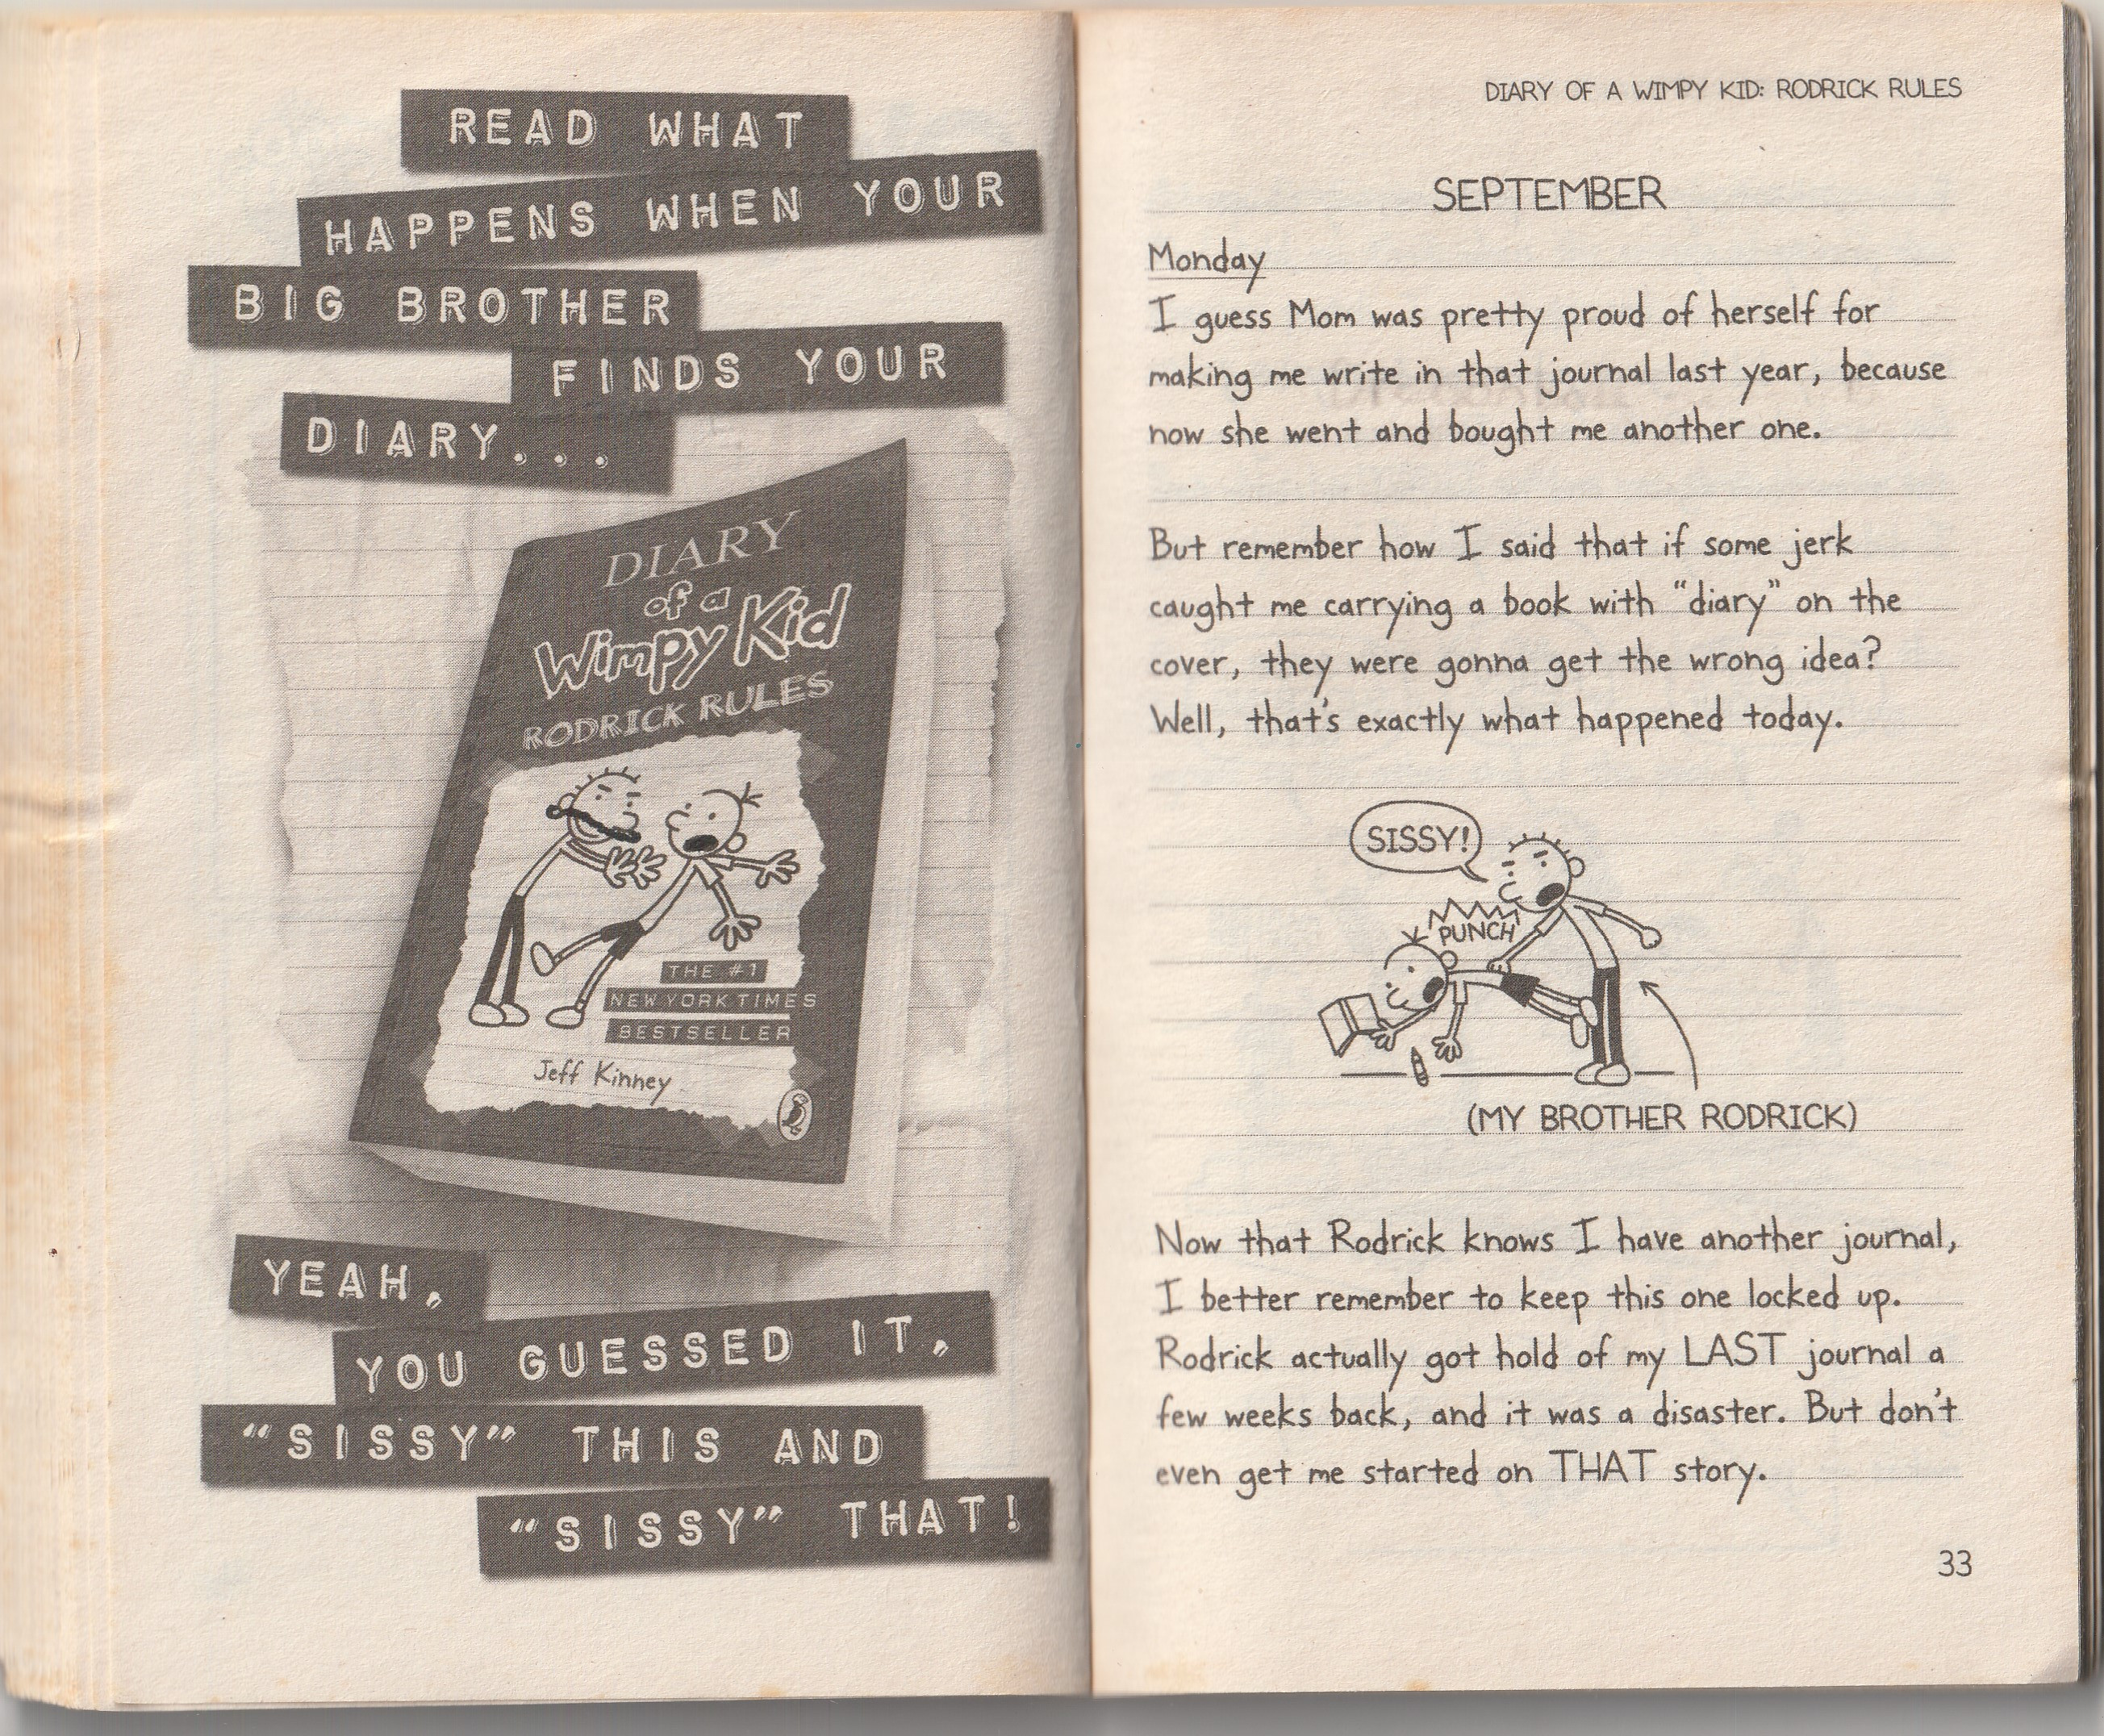 READ WHAT
HAPPENS WHEN YOUR
BIG BROTHER
FINDS YOUR
DIARY...
DIARY
of a
Wimpy Kid
RODRICK RULES
THE #1
NEW YORK TIMES
BESTSELLER
Jeff Kinney
YEAH,
YOU GUESSED IT,
“SISSY” THIS AND
“SISSY” THAT!
DIARY OF A WIMPY KID: RODRICK RULES
SEPTEMBER
Monday
I guess Mom was pretty proud of herself for
making me write in that journal last year, because
now she went and bought me another one.
But remember how I said that if some jerk
caught me carrying a book with “diary” on the
cover, they were gonna get the wrong idea?
Well, that's exactly what happened today.
SISSY!
PUNCH
(MY BROTHER RODRICK)
Now that Rodrick knows I have another journal,
I better remember to keep this one locked up.
Rodrick actually got hold of my LAST journal a
few weeks back, and it was a disaster. But don't
even get me started on THAT story.
33